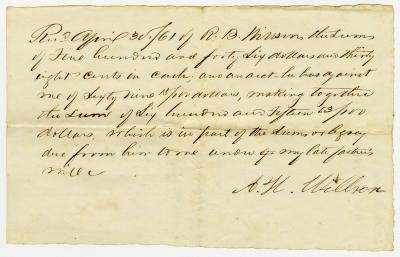 Recd April 30/61 of R. B. Willson the sum
of Five hundred and forty Six dollars and thirty
eight cents in cash, and an acct he has against
me of Sixty Nine 15/100 dollars, making together
the Sum of Six hundred and fifteen 53/100
dollars, which is in part of the Sums or legacy
due from him to me under of my late father's
will
A. H. Willson